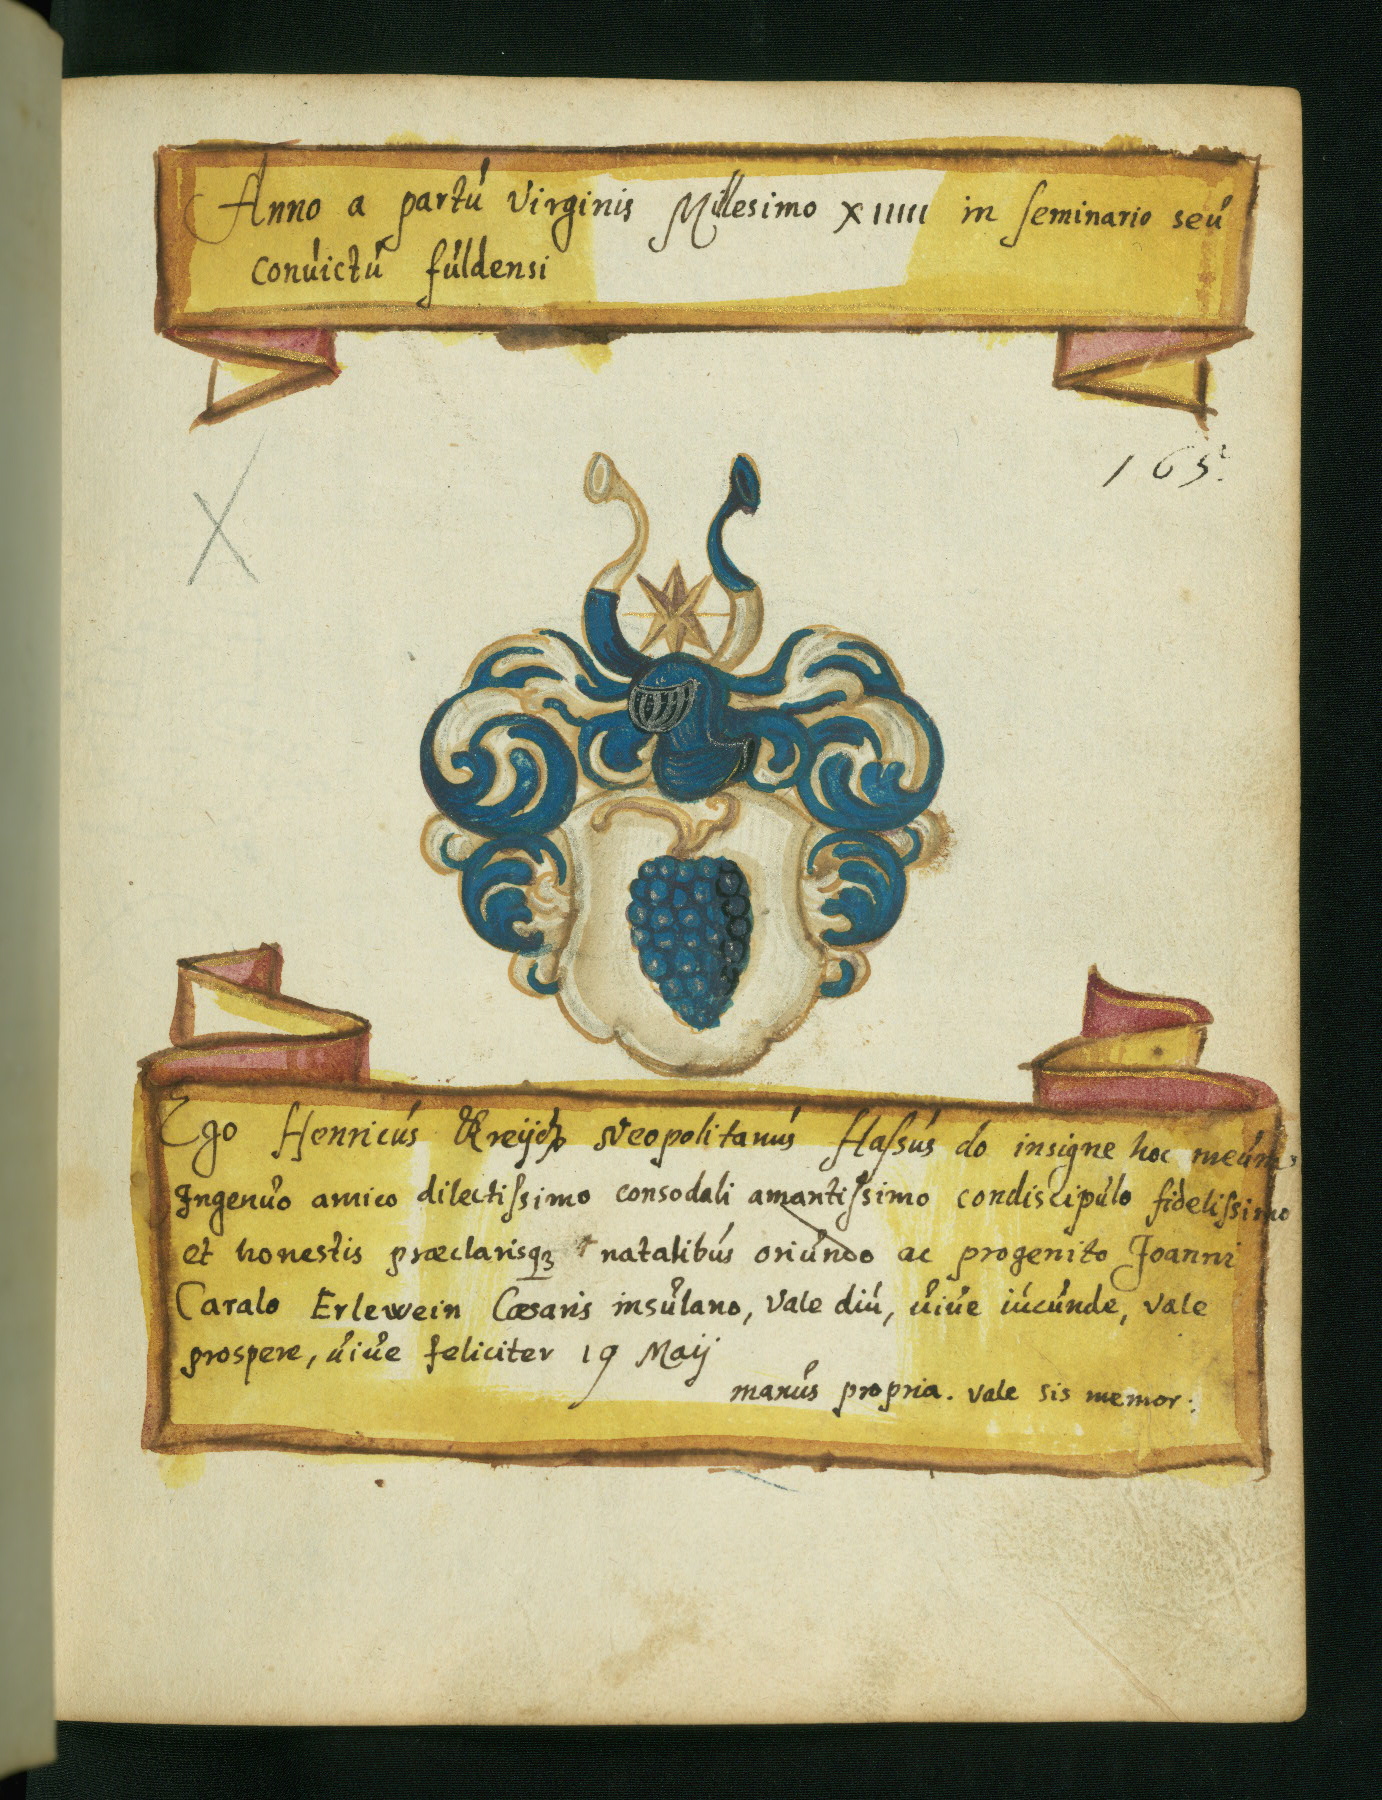 Anno a partu Virginis Millesimo XIIIII in seminario seu
convictu fuldensi
165.
Ego Henricus Neopolitanus Hassus do insigne hoc meum
Ingenuo amico dilectissimo consodali amantissimo condiscipulo fidelissimo
et honestis præclarisq natalibus oriundo ac progenito Joanni
Caralo Erlewein Cæsaris insulano, Vale diu, vive iucunde, vale
prospere, vive feliciter 19 Maij
manus propria. vale sis memor: